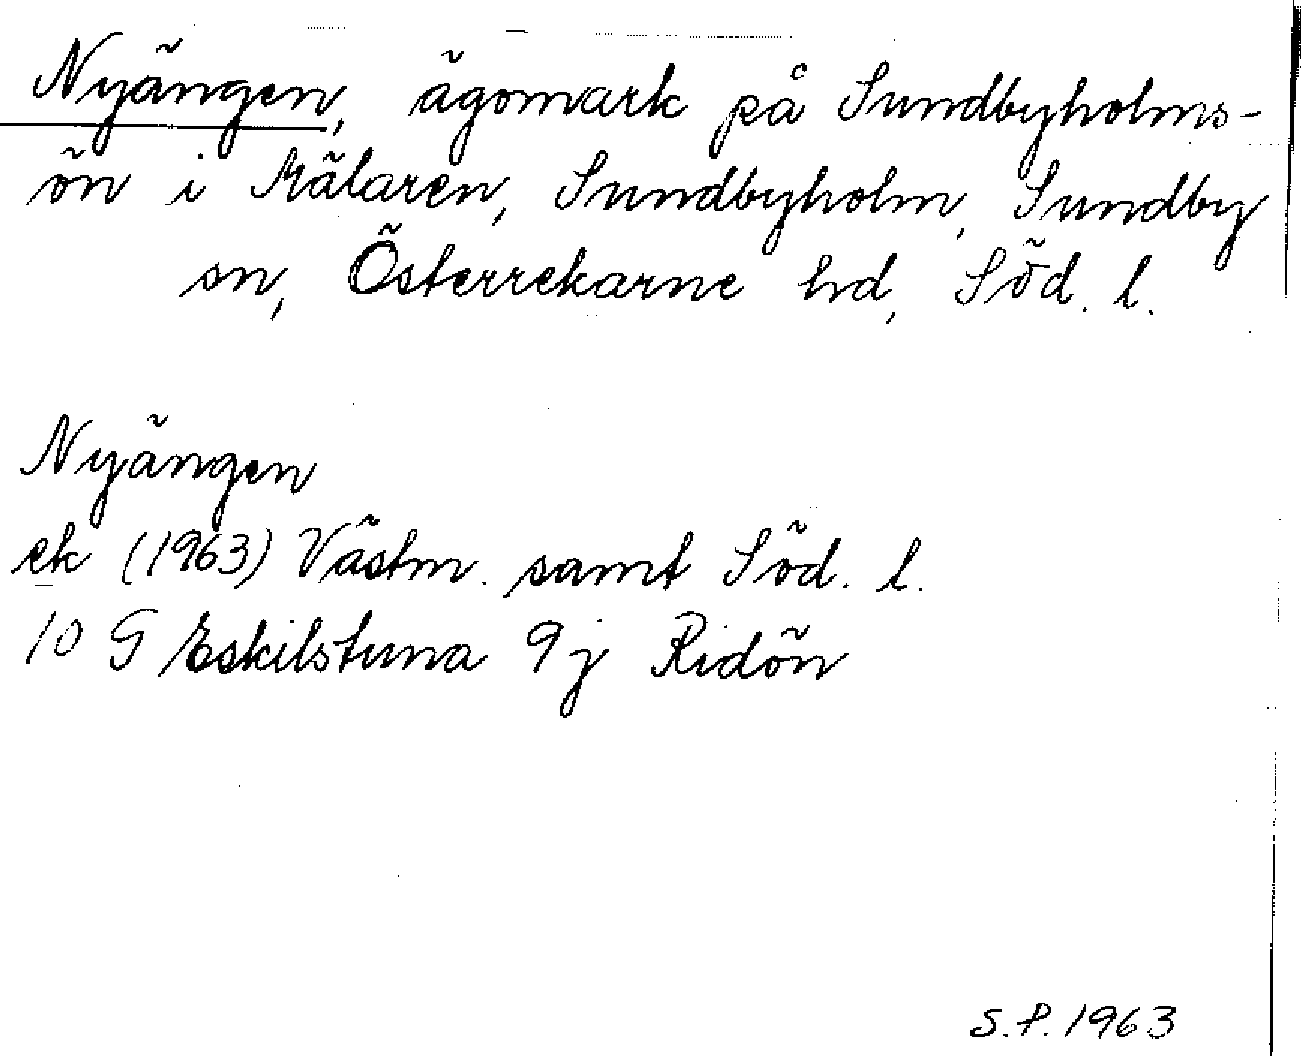 Nyängen, ägomark på Sundbyholms-
ön i Mälaren, Sundbyholm, Sundby
sn, Österrekarne hd, Söd. l.
Nyängen
ek (1963) Västm. samt Söd. l.
10 G Eskilstuna 9j Ridön
S.P. 1963